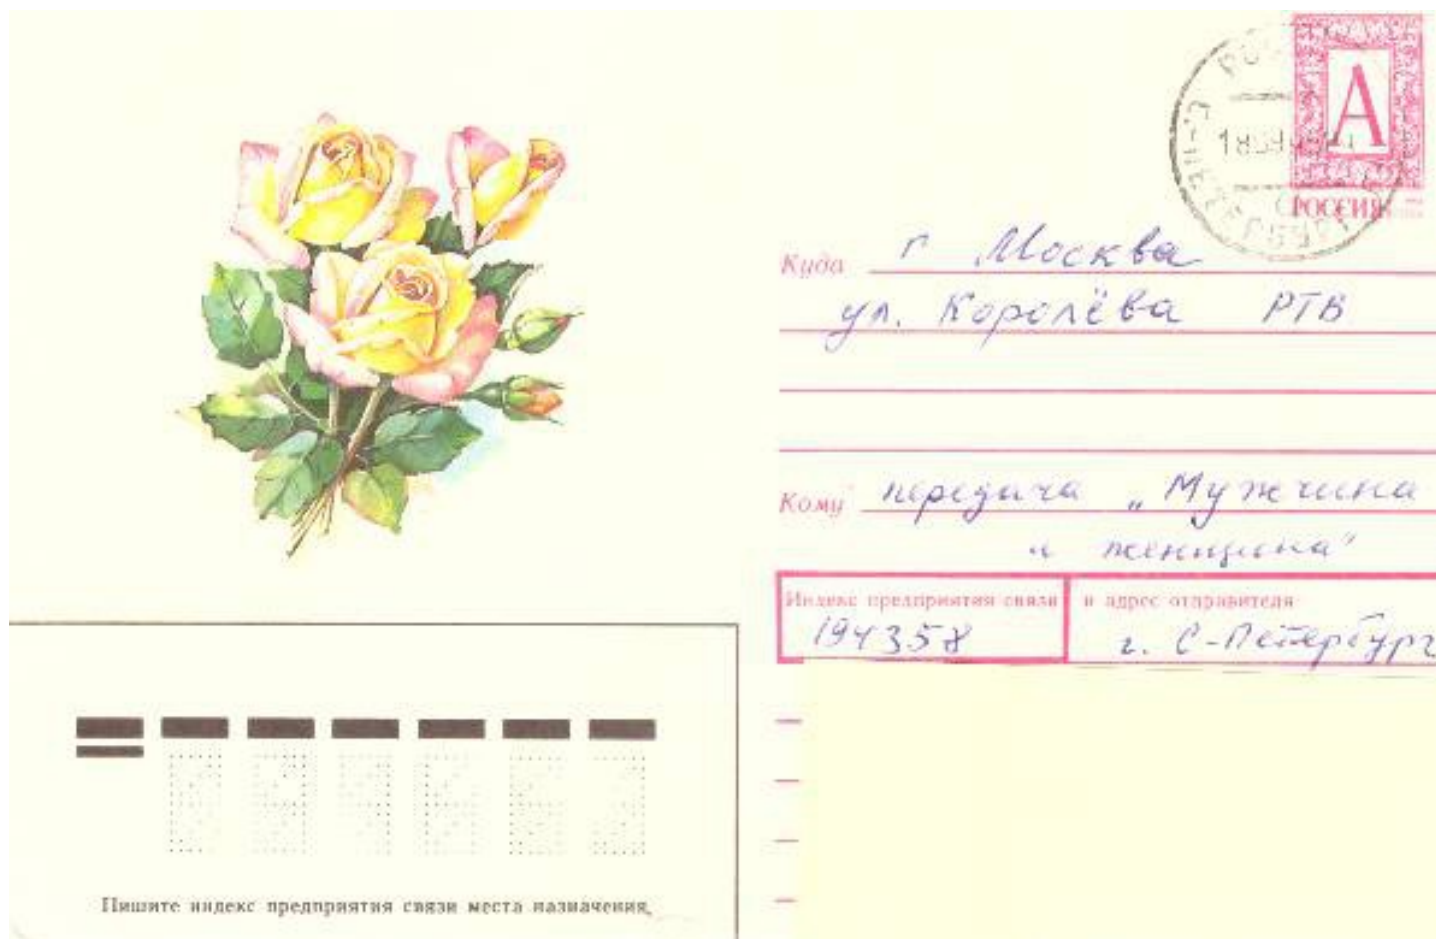 А
РОССИЯ
Куда г Москва
ул. Королёва РТВ
Кому передача „Мужчина
и женщина"
Индекс предприятия связи и адрес отправителя
194358 г. С-Петербург
Пишите индекс предприятия связи места назначения